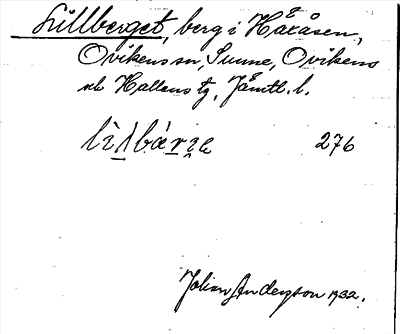 Lillberget, berg i Håråsen,
Ovikens sn, Sunne, Ovikens
och Hallens tg, Jämtl. l.
lìlbárıe 276
Johan Anderzson 1932.